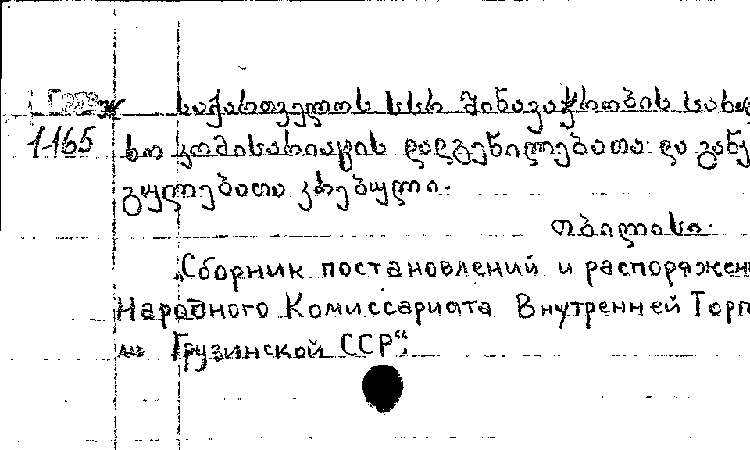 საქართველოს სსრ შინავაჭრობის სახალ
1-165 ხო კომისარიატის დადგენილებათა და განკ
გულებათა კრებული.
თბილისი.
„Сборник постановлений и распоряжени
Народного Комиссариата Внутренней Торг
ли Грузинской ССР“.